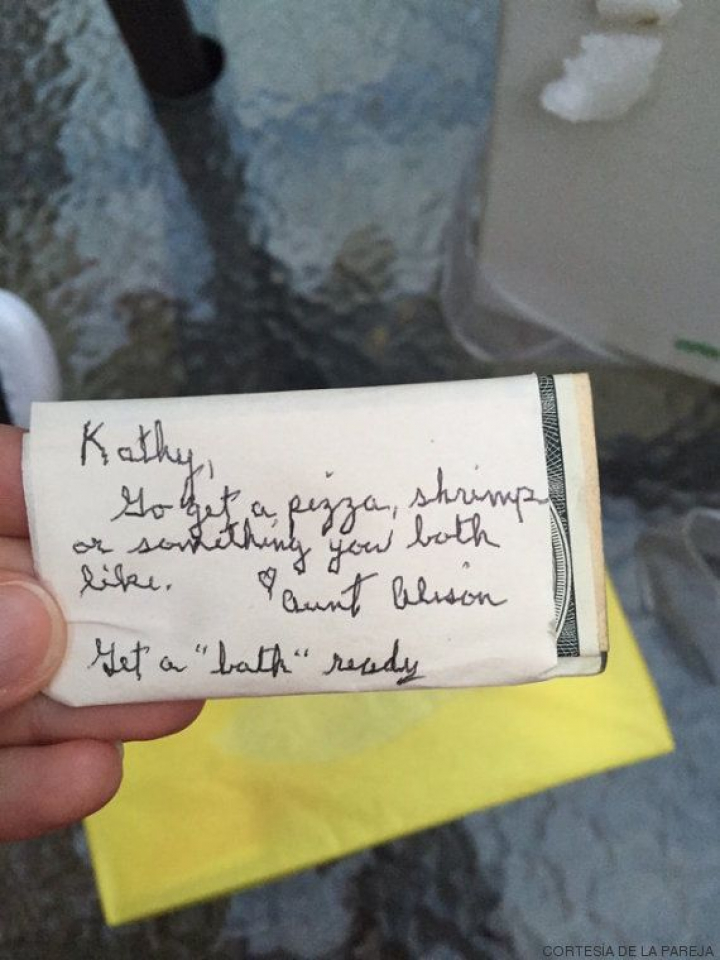 Kathy,
Go get a pizza, shrimp
or something you both
like. ♡ Aunt Alison
Get a "bath" ready
CORTESÍA DE LA PAREJA